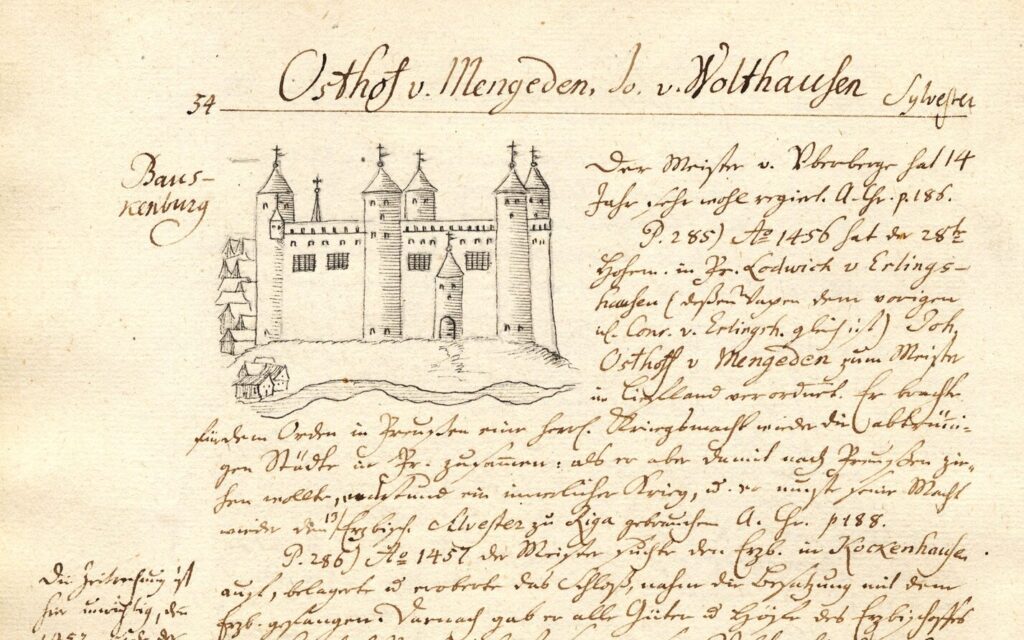 Osthof v. Mengeden, Jo. v. Wolthausen
Sylvester
54
Baus-
kenburg
Der Meister v. Vberberge hat 14
Jahr sehr wohl regiert. A. Chr. p. 186.
P. 285) Aº 1456 hat der 28te
Hohem. in Pr. Lodwich v Erlings-
hausen (deßen Wapen dem vorigen
Conr. v. Erlingsh. gleich ist) Joh.
Osthoff v Mengeden zum Meister
in Liefland verordnet. Er brachte
für dem Orden in Preußen eine herrl. Kriegsmacht wieder die abtrünni-
gen Städte in Pr. zusammen: als er aber damit nach Preußen zie-
hen wollte, entstund ein innerlicher Krieg, u. er muste seine Macht
wieder den 13 Erzbisch. Silvester zu Riga gebrauchen A. Chr. p 188.
P. 286) Aº 1457 der Meister suchte den Erzb. in Kockenhausen
auf, belagerte u eroberte das Schloß, nahm die Besatzung mit dem
Erzb. gefangen. Darnach gab er alle Güter u Höfe des Erzbischoffs
Die Zeitrechnung ist
hier unrichtig, den
1457